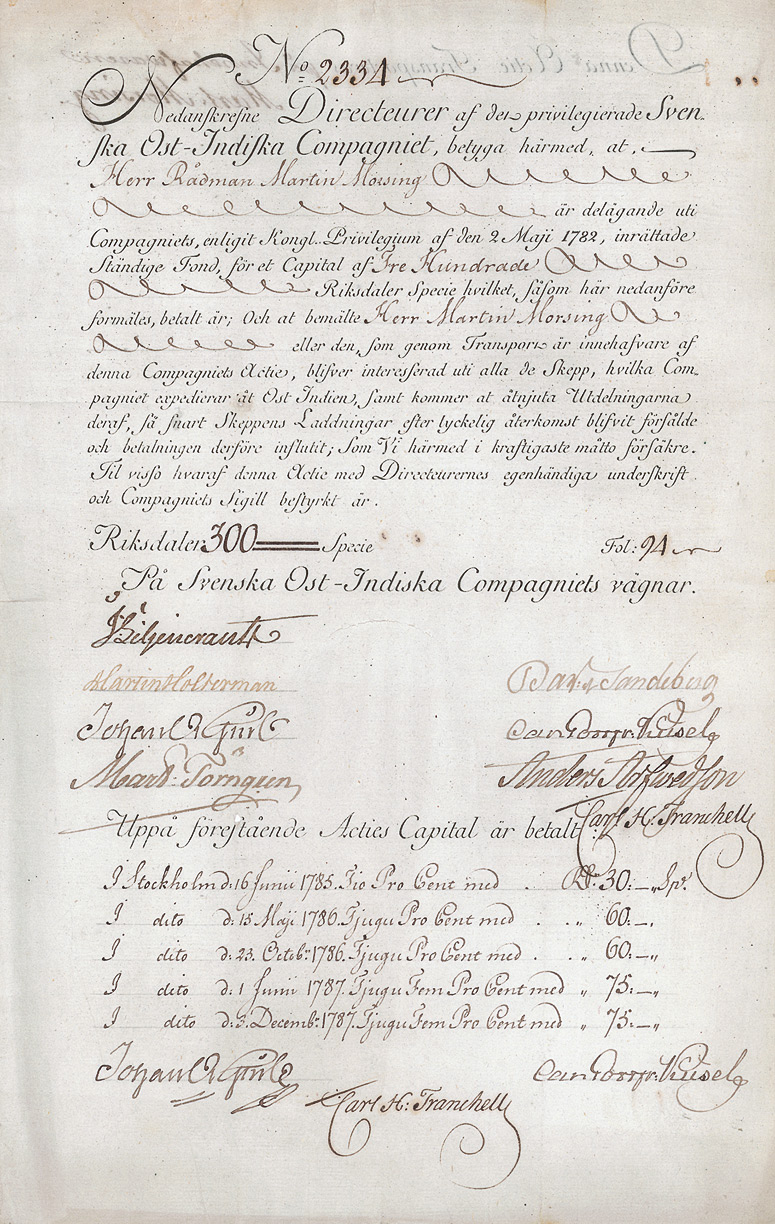 No. 2334
Nedanskrefne Directeurer af det privilegierade Sven-
ska Ost-Indiska Compagniet, betyga härmed, at,
Herr Rådman Martin Morsing
är delägande uti
Compagniets, enligit Kongl. Privilegium af den 2 Maji 1782, inrättade
Ständige Fond, för et Capital af Tre Hundrade
Riksdaler Specie hvilket, såsom här nedanföre
formäles, betalt är; Och at bemälte Herr Martin Morsing
eller den, som genom Transport är innehafvare af
denna Compagniets Actie, blifver interesserad uti alla de Skepp, hvilka Com-
pagniet expedierar åt Ost Indien, samt kommer at åtnjuta Utdelningarna
deraf, så snart Skeppens Laddningar efter lyckelig återkomst blifvit försålde
och betalningen derföre influtit; Som Vi härmed i kraftigaste måtto försäkre.
Til visso hvaraf denna Actie med Directeurernes egenhändiga underskrift
och Compagniets Sigill bestyrkt är.
Riksdaler 300 Specie Fol: 94
På Svenska Ost-Indiska Compagniets vägnar.
J Liljencrantz
Martin Holterman Dav: Sandeberg
Mart: Törngren Anders Arfwedson
Carl H: Tranchell
Uppå förestående Acties Capital är betalt
I Stockholm d: 16 Junii 1785. Tio Pro Cent med Rd: 30:—„ Sp:
I dito d: 15 Maji 1786. Tjugu Pro Cent med „ 60:—„
I dito d: 23. Octobr: 1786. Tjugu Pro Cent med „ 60:—„
I dito d: 1 Junii 1787. Tjugu Fem Pro Cent med „ 75:—„
I dito d: 3. Decembr: 1787. Tjugu Fem Pro Cent med „ 75:—„
Carl H: Tranchell